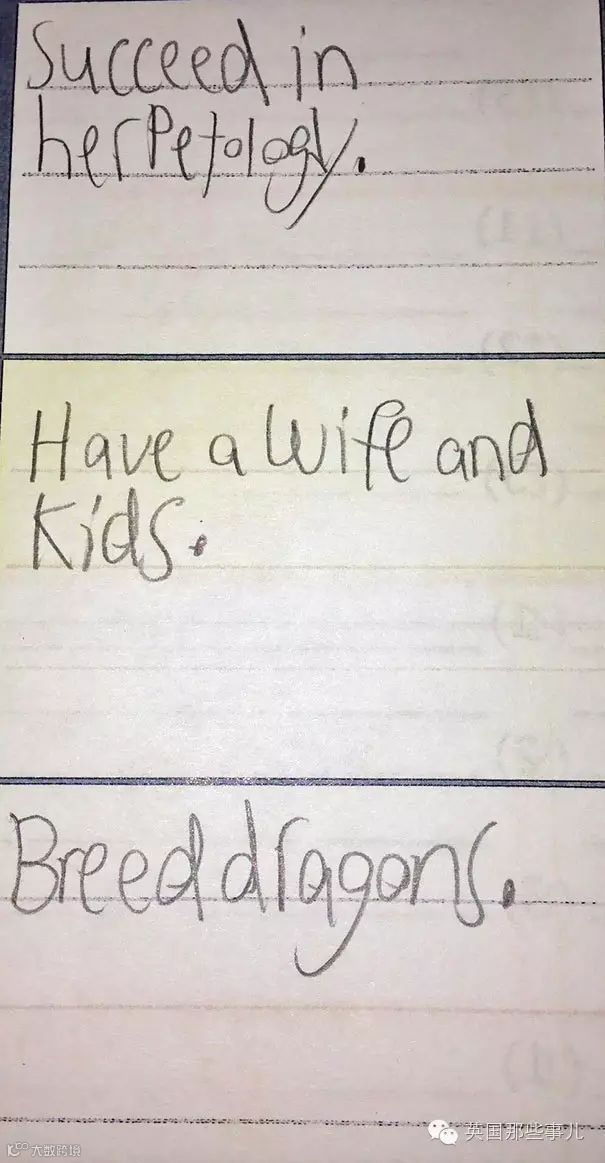 Succeed in
herpetology.
Have a Wife and
Kids.
Breed dragons.
英国那些事儿
大数跨境